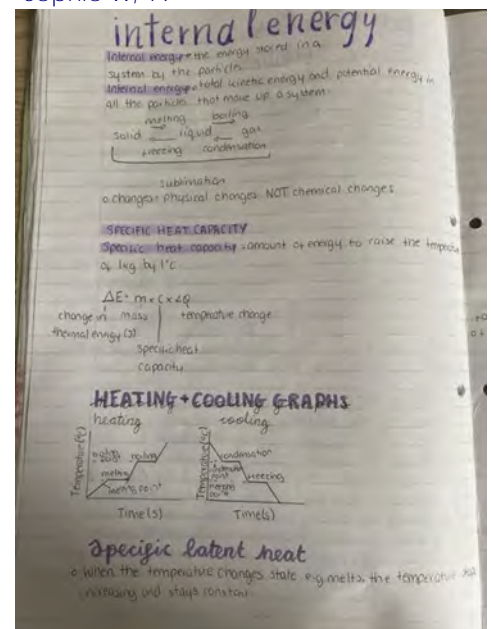 internal energy
Internal energy = the energy stored in a
system by the particles
Internal energy = total kinetic energy and potential energy in
all the particles that make up a system.
melting boiling
solid liquid gas
freezing condensation
sublimation
changes = physical changes NOT chemical changes
SPECIFIC HEAT CAPACITY
Specific heat capacity = amount of energy to raise the
of 1kg by 1°C
ΔE = m × C ×
change in mass temperature change
thermal energy (J)
specific heat
capacity
HEATING + COOLING GRAPHS
heating cooling
Temperature (°C)
boiling
melting
point
Temperature (°C)
condensation
point
freezing
point
Time (s) Time(s)
Specific latent heat
when the temperature changes state e.g. melts, the temperature
increasing and stays constant